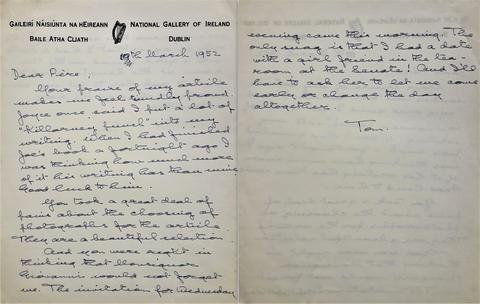 GAILERÍ NÁISIÚNTA NA hÉIREANN
BAILE ATHA CLIATH
NATIONAL GALLERY OF IRELAND
DUBLIN
19th March 1952
Dear Piére,
Your praise of my article
makes me feel smugly proud.
Joyce once said I put a lot of
"Killarney" into my
writing. When I had finished
Joe's book a fortnight ago I
was thinking how much more
of it his writing has than mine
Good luck to him.
You took a great deal of
pains about the choosing of
photographs for the article.
They are a beautiful selection.
And you were right in
thinking that Monsignor
Giovanni would not forget
me. The invitation for Wednesday
evening came this morning. The
only snag is that I had a date
with a girl friend in the tea-
room at the Senate! And I'll
have to ask her to let me come
early or change the day
altogether.
Tom.